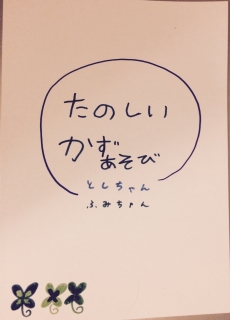 たのしい
かずあそび
としちゃん
ふみちゃん